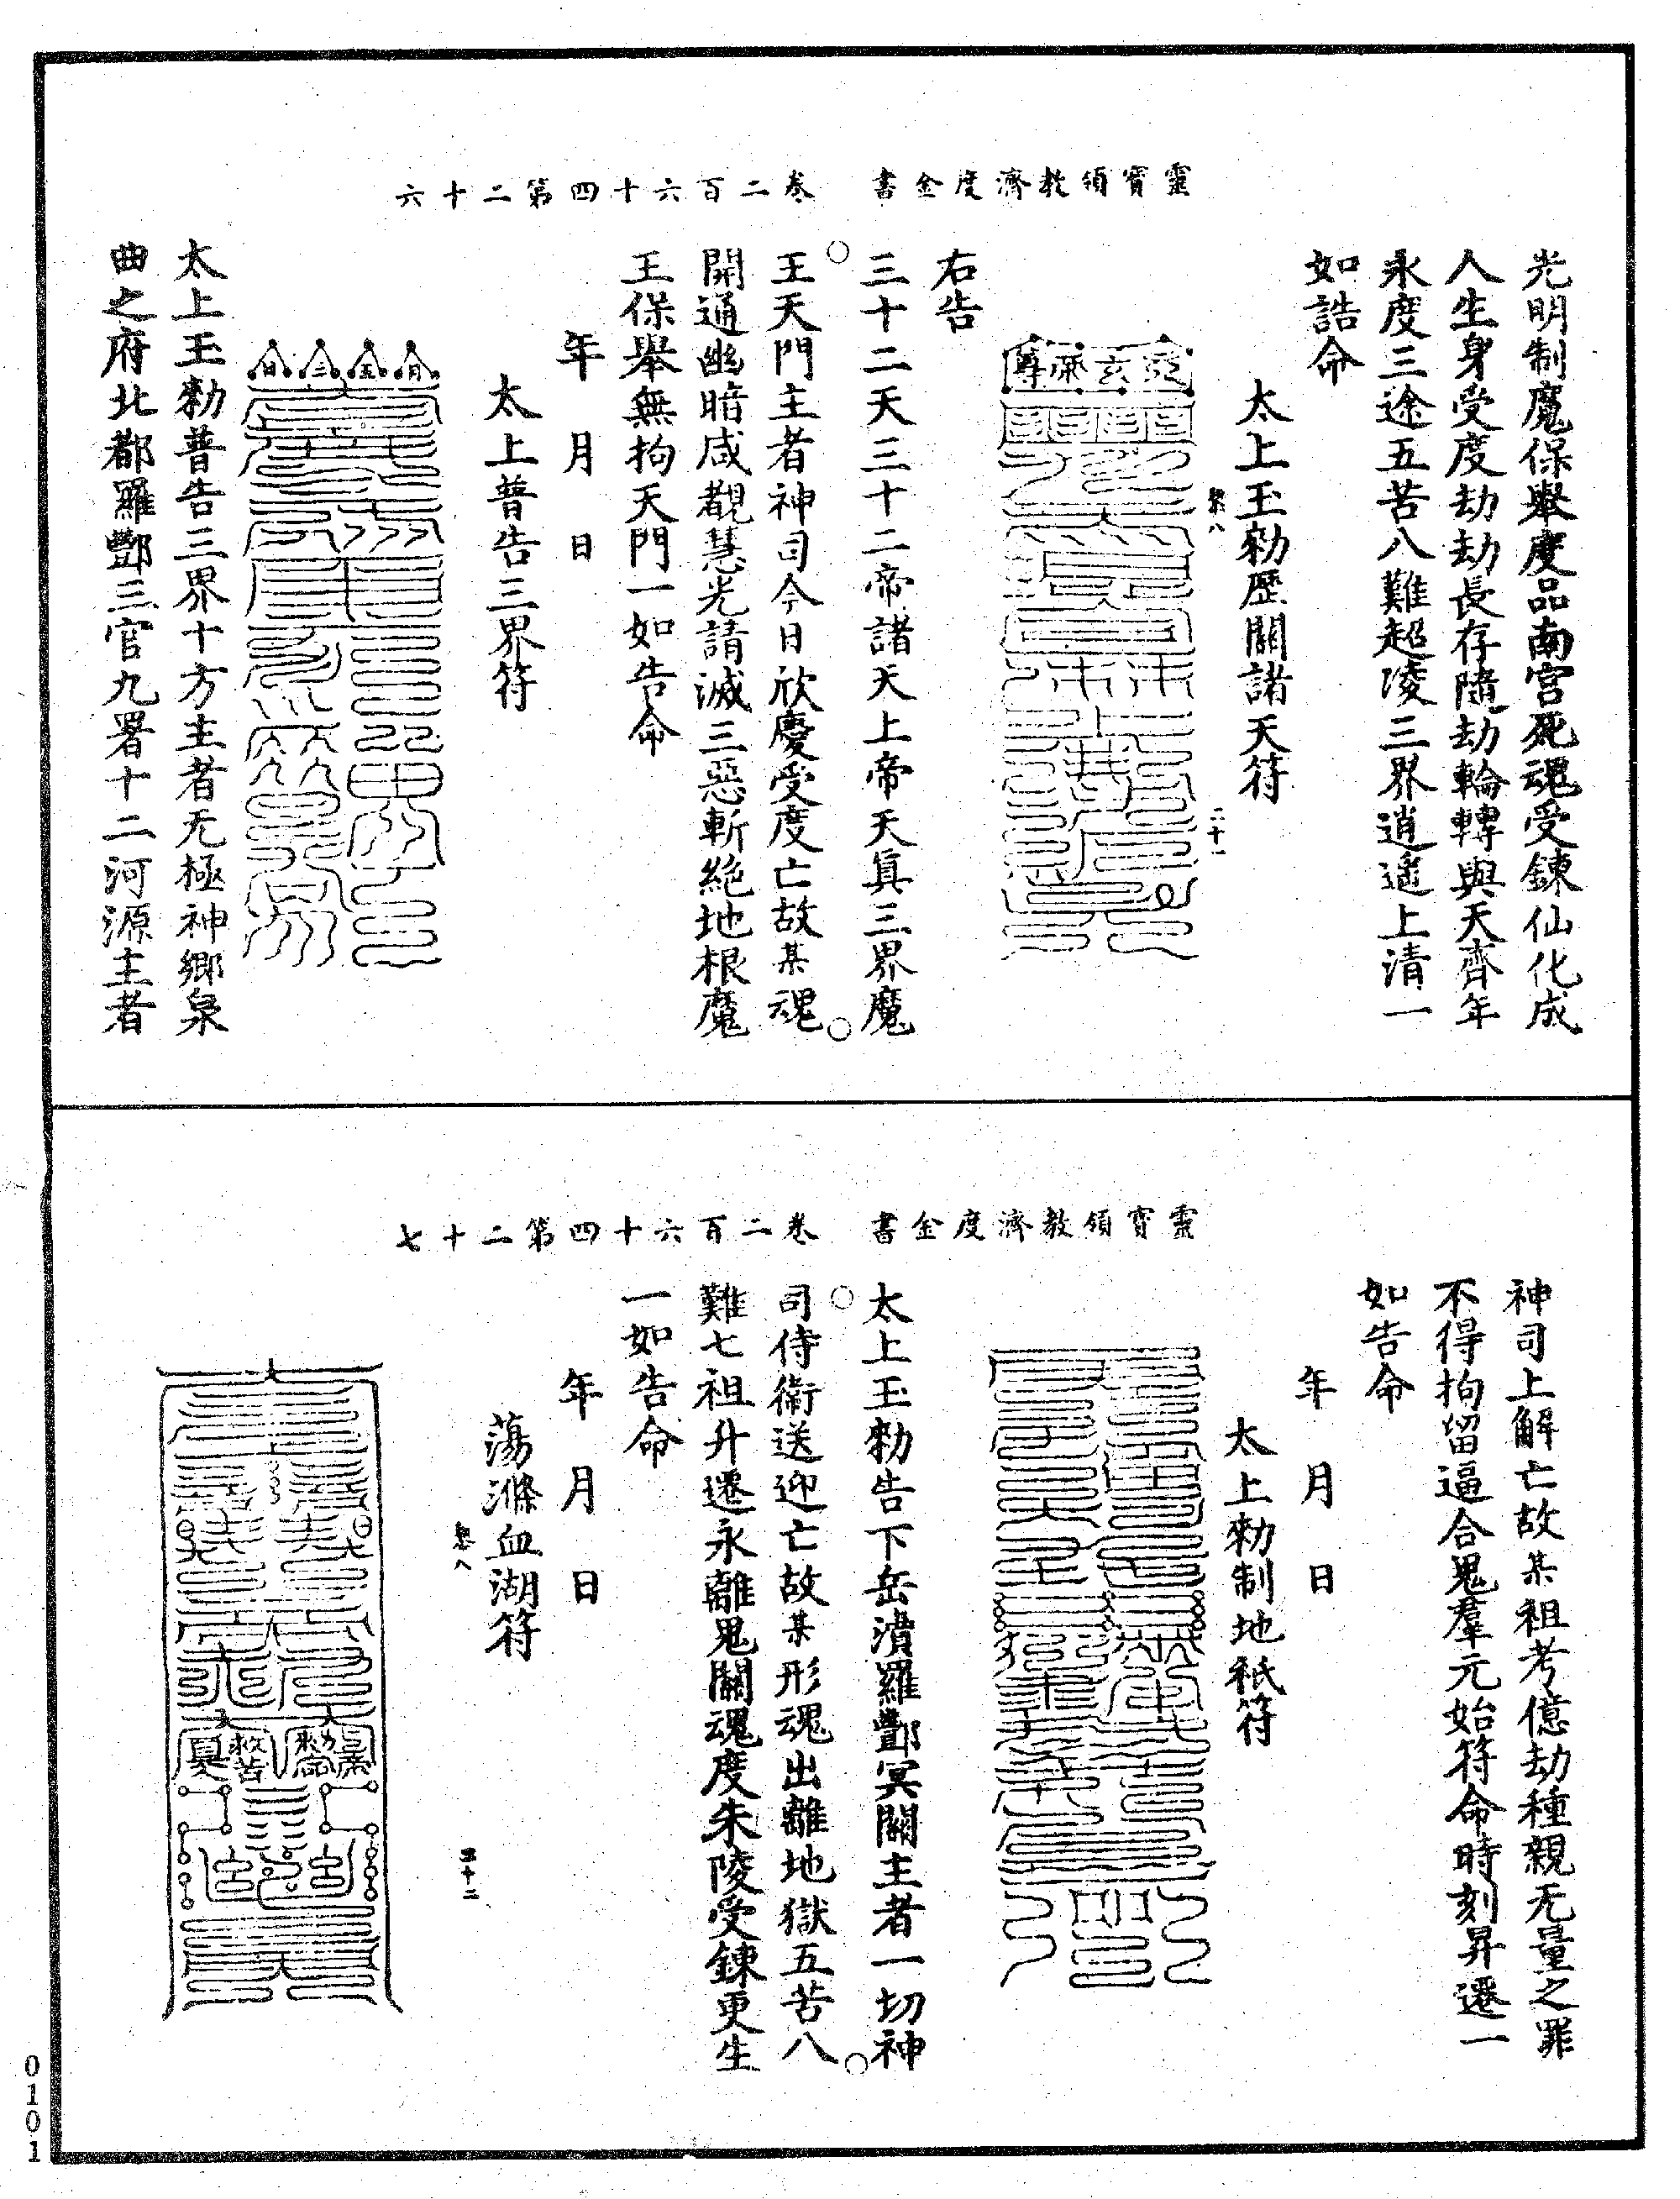 靈寶領教濟度金書　卷二百六十四第二十六
光明制魔保舉度品南宮死魂受鍊仙化成
人生身受度劫劫長存隨劫輪轉與天齊年
永度三途五苦八難超凌三界逍遙上清一
如誥命
太上玉勑歷關諸天符
二十一
右告
三十二天三十二帝諸天上帝天真三界魔
王天門主者神司今日欣慶受度亡故某魂
開通幽暗咸覩慧光請滅三惡斬絕地根魔
王保舉無拘天門一如告命
年　月　日
太上普告三界符
太上玉勑普告三界十方主者无極神鄉泉
曲之府北都羅酆三官九署十二河源主者
靈寶領教濟度金書　卷二百六十四第二十七
神司上解亡故某祖考億劫種親无量之罪
不得拘留逼合鬼羣元始符命時刻昇遷一
如告命
年　月　日
太上勑制地祇符
太上玉勑告下岳瀆羅酆冥關主者一切神
司侍衞送迎亡故某形魂出離地獄五苦八
難七祖升遷永離鬼關魂度朱陵受鍊更生
一如告命
年　月　日
蕩滌血湖符
0101